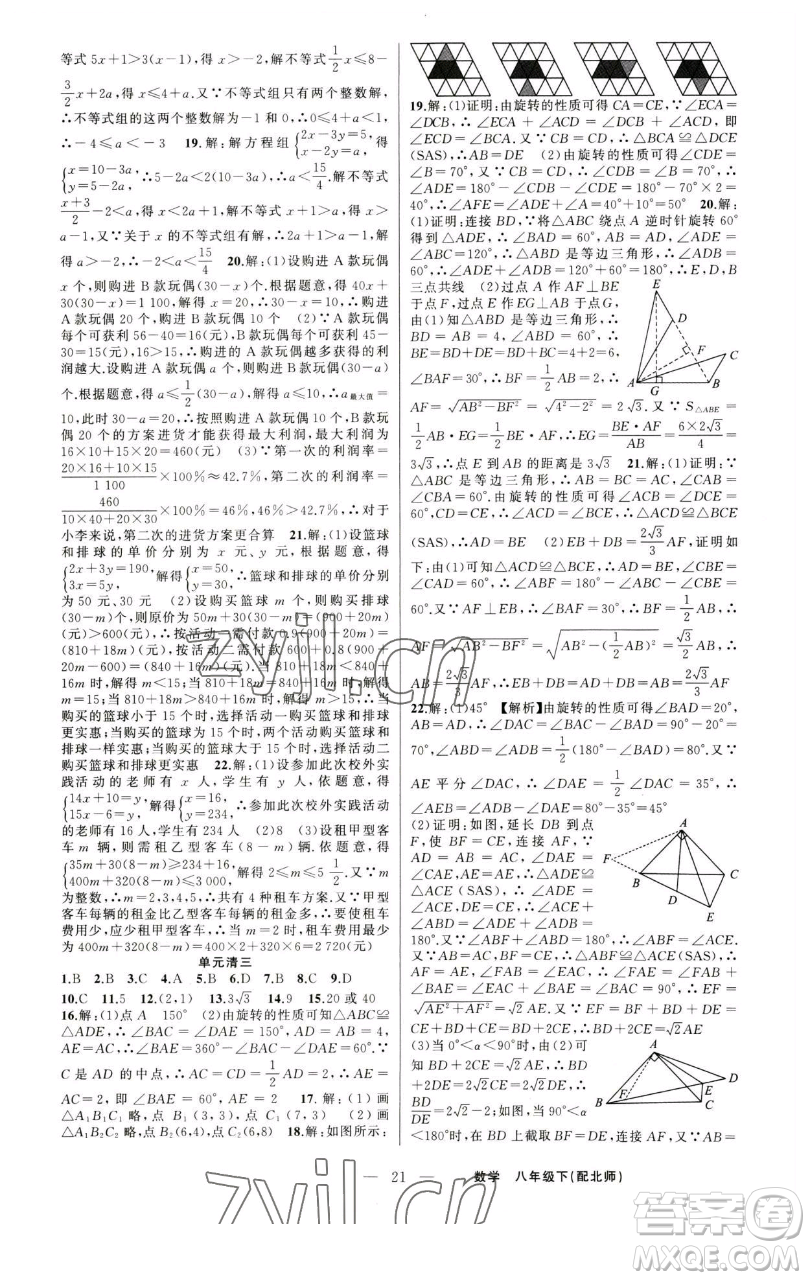 等式 5x+1>3(x-1),得 x>-2,解不等式 1/2 x≤8-
3/2 x+2a,得 x≤4+a.又∵不等式组只有两个整数解,
∴不等式组的这两个整数解为-1 和 0,∴0≤4+a<1,
∴-4≤a<-3 19.解:解方程组{2x-3y=5, x-2y=a, 得
{x=10-3a, y=5-2a, ∴5-2a<2(10-3a),∴a<15/4.解不等式
(x+3)/2-2<a,得 x<2a+1,解不等式 x-a>0,得 x>
a-1,又∵关于 x 的不等式组有解,∴2a+1>
a-1,∴a>-2,∴-2<a<15/4 20.解:(1)设购进 A 款玩偶
x 个,则购进 B 款玩偶(30-x)个.根据题意,得 40x+
30(30-x)=1 100,解得 x=20,∴30-x=10,∴购进
A 款玩偶 20 个,购进 B 款玩偶 10 个 (2)∵A 款玩偶
每个可获利 56-40=16(元),B 款玩偶每个可获利 45-
30=15(元),16>15,∴A 款玩偶越多获得的利
润越大.设购进 A 款玩偶 a 个,则购进 B 款玩偶(30-a)
个.根据题意,得 a≤1/2(30-a),解得 a≤10,∴a最大值=
10,此时 30-a=20,∴按照购进 A 款玩偶 10 个,B 款玩
偶 20 个的方案进货才能获得最大利润,最大利润为
16×10+15×20=460(元) (3)∵第一次的利润率=
(20×16+10×15)/1 100×100%≈42.7%,第二次的利润率=
460/(10×40+20×30)×100%=46%,46%>42.7%,∴对于
小李来说,第二次的进货方案更合算 21.解:(1)设篮球
和排球的单价分别为 x 元、y 元,根据题意,得
{2x+3y=190, 3x=5y, 解得{x=50, y=30, ∴篮球和排球的单价分别
为 50 元、30 元 (2)设购买篮球 m 个,则购买排球
(30-m)个,则原价为 50m+30(30-m)=(900+20m)
(元)>600,∴按活动一需付款 0.9(900+20m)=
(810+18m)(元),按活动二需付款 600+0.8(900+
20m-600)=(840+16m)(元).当 810+18m<840+
16m 时,解得 m<15;当 810+18m=840+16m 时,解得
m=15;当 810+18m>840+16m 时,解得 m>15,∴当
购买的篮球小于 15 个时,选择活动一购买篮球和排球
更实惠;当购买的篮球为 15 个时,两个活动购买篮球和
排球一样实惠;当购买的篮球大于 15 个时,选择活动二购买
篮球和排球更实惠 22.解:(1)设参加此次校外实
践活动的老师有 x 人,学生有 y 人,依题意,得
{14x+10=y, 15x-6=y, 解得{x=16, y=234, ∴参加此次校外实践活动
的老师有 16 人,学生有 234 人 (2)8 (3)设租甲型客
车 m 辆,则需租乙型客车(8-m)辆.依题意,得
{35m+30(8-m)≥234+16, 400m+320(8-m)≤3 000, 解得 2≤m≤5 1/2.又∵m 为
整数,∴m=2,3,4,5,∴共有 4 种租车方案.又∵甲型
客车每辆的租金比乙型客车每辆的租金多,∴要使租车
费用少,应少租甲型客车,∴当 m=2 时,租车费用最少为
400m+320(8-m)=400×2+320×6=2 720(元)
单元清三
1.B 2.B 3.C 4.A 5.B 6.D 7.B 8.C 9.D
10.C 11.5 12.(2,1) 13.3√3 14.9 15.20 或 40
16.解:(1)点 A 150° (2)由旋转的性质可知△ABC≌
△ADE,∴∠BAC=∠DAE=150°,AD=AB=4,
AE=AC,∴∠BAE=360°-∠BAC-∠DAE=60°.∵
C 是 AD 的中点,∴AC=CD=1/2 AD=2,∴AE=AC=
2,即∠BAE=60°,AE=2 17.解:(1)画
△A₁B₁C₁ 略,点 B₁(3,3),点 C₁(7,3) (2)画
△A₂B₂C₂ 略,点 B₂(6,4),点 C₂(6,8) 18.解:如图所示:
19.解:(1)证明:由旋转的性质可得 CA=CE,∵∠ECA=
∠DCB,∴∠ECA+∠ACD=∠DCB+∠ACD,即
∠ECD=∠BCA.又∵CD=CB,∴△ABC≌△DCE
(SAS),∴AB=DE (2)由旋转的性质可得∠CDE=
∠B=70°,又∵CB=CD,∴∠B=∠CDB=70°,∴
∠ADE=180°-∠CDB-∠CDE=180°-70°×2=
40°,∴∠AFE=∠ADE+∠A=40°+10°=50° 20.解:
(1)证明:连接 BD,∵将△ABC 绕点 A 逆时针旋转 60°
得到△ADE,∴∠BAD=60°,AB=AD,∴
△ABD 是等边三角形,∴∠ADB=
60°,∴∠ADB+∠ADE=120°+60°=180°,∴E,D,B
三点共线 (2)过点 A 作 AF⊥BE
于点 F,过点 E 作 EG⊥AB 于点 G,
由(1)知△ABD 是等边三角形,∴
BD=AB=4,∠ABD=60°,∴
BE=BD+DE=BD+BC=4+2=6,
∠BAF=30°,∴BF=1/2 AB=2,∴
AF=√(AB²-BF²)=√(4²-2²)=2√3.又∵S△ABE=
1/2 AB·EG=1/2 BE·AF,∴EG=BE·AF/AB=6×2√3/4=
3√3,∴点 E 到 AB 的距离是 3√3 21.解:(1)证明:∵
△ABC 是等边三角形,∴AB=BC=AC,∠ACB=
∠CBA=60°.由旋转的性质可得∠DCE=
60°,CD=CE,∴∠ACD=∠BCE,∴△ACD≌△BCE
(SAS),∴AD=BE (2)EB+DB=2√3/3 AF,证明如
下:由(1)可知△ACD≌△BCE,∴∠CAD=∠CBE=
60°.又∵AF⊥EB,∴∠BAF=30°,∴BF=1/2 AB,∴
AF=√(AB²-BF²)=√(AB²-(1/2 AB)²)=√3/2 AB,∴
AB=2√3/3 AF,∴EB+DB=AD+DB=AB=2√3/3 AF
22.解:(1)45° 【解析】由旋转的性质可得∠BAD=20°,
AB=AD,∴∠DAC=∠BAC-∠BAD=90°-20°=
70°,∠ABD=∠ADB=1/2(180°-∠BAD)=80°.又∵
AE 平分∠DAC,∴∠DAE=1/2∠DAC=35°,∴
∠AEB=∠ADB-∠DAE=80°-35°=45°
(2)证明:如图,延长 DB 到点
F,使 BF=CE,连接 AF,∵
AD=AB=AC,∠DAE=
∠CAE,AE=AE,∴△ADE≌
△ACE(SAS),∴DE=CE,
∠ADE=∠ACE.又∵∠ABF+
∠ABD=∠ADE+∠ADB=
180°.又∵∠ABD=∠ADB,∴∠ABF=∠ACE.
又∵AB=AC,BF=CE,∴△ABF≌△ACE,∴AF=
AE,∠BAF=∠CAE,∴∠FAE=∠BAC=90°,∴EF=
√(AE²+AF²)=√2AE.又∵EF=BF+BD+DE=
CE+BD+CE=BD+2CE,∴BD+2CE=√2AE
(3)当 0°<α<90°时,由(2)可
知 BD+2CE=√2AE,∴BD
+2DE=2√2DE,∴
BD/DE=2√2-2;如图,当 90°<α
<180°时,
A
B
C
D
E
F
G
A
B
C
D
E
F
A
B
C
D
E
F
— 21 — 数学 八年级下(配北师)
zyjl.cn
zyjl.cn
答案圈
MXQE.COM